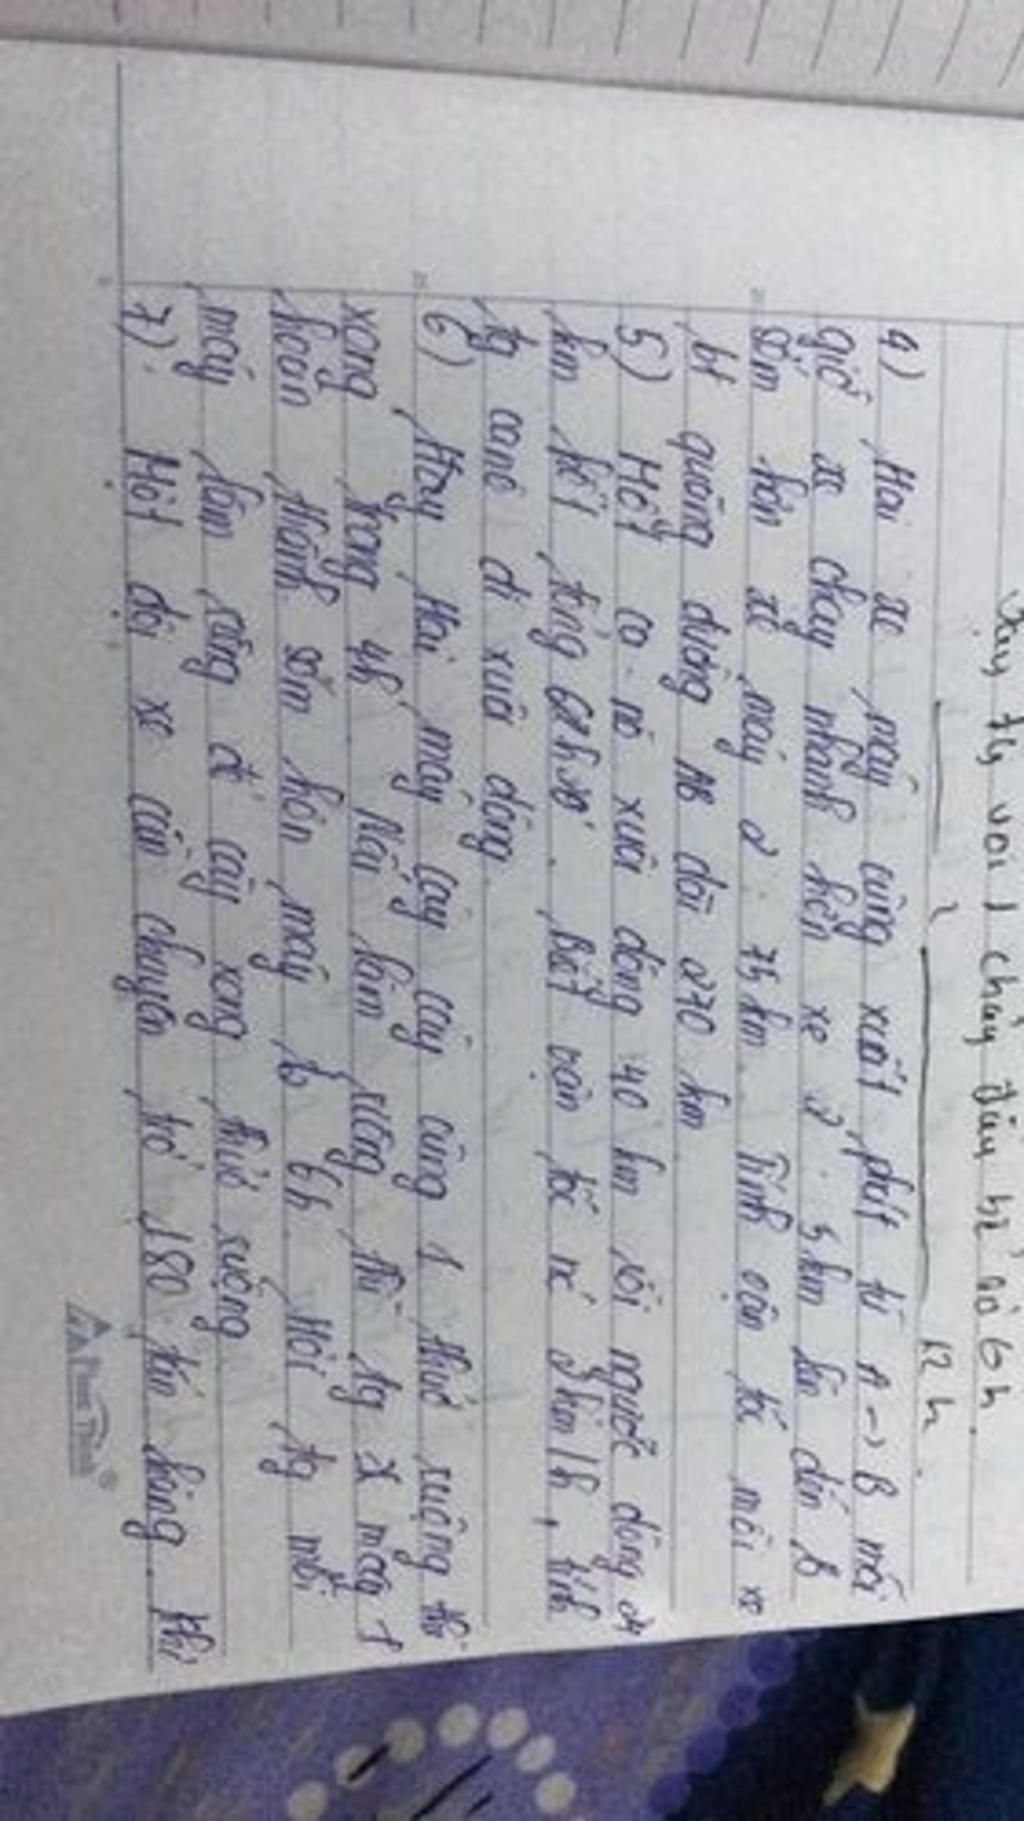 Vậy thì vòi 1 chảy đầu bể nó 6 h.
12 h.
4) Hai xe máy cùng xuất phát từ A -> B mỗi
giờ xe chạy nhanh hơn xe 2. 5 km lên đến B
sớm hơn xe máy 2. 75 km. Tính vận tốc mỗi xe
bt quãng đường AB dài 270 km
5) Một ca-nô xuôi dòng 40 km rồi ngược dòng 24
km hết tổng 6h. Biết vận tốc nc 3 km/h, tính
tg canô đi xuôi dòng
6) Hai máy cày cày cùng 1 thửa ruộng thì
xong trong 4h. Nếu làm riêng thì tg x máy 1
hoàn thành sớm hơn máy 2 6h. Hỏi tg mỗi
máy làm riêng để cày xong thửa ruộng
7) Một đội xe cần chuyên trở 180 tấn hàng. Khi